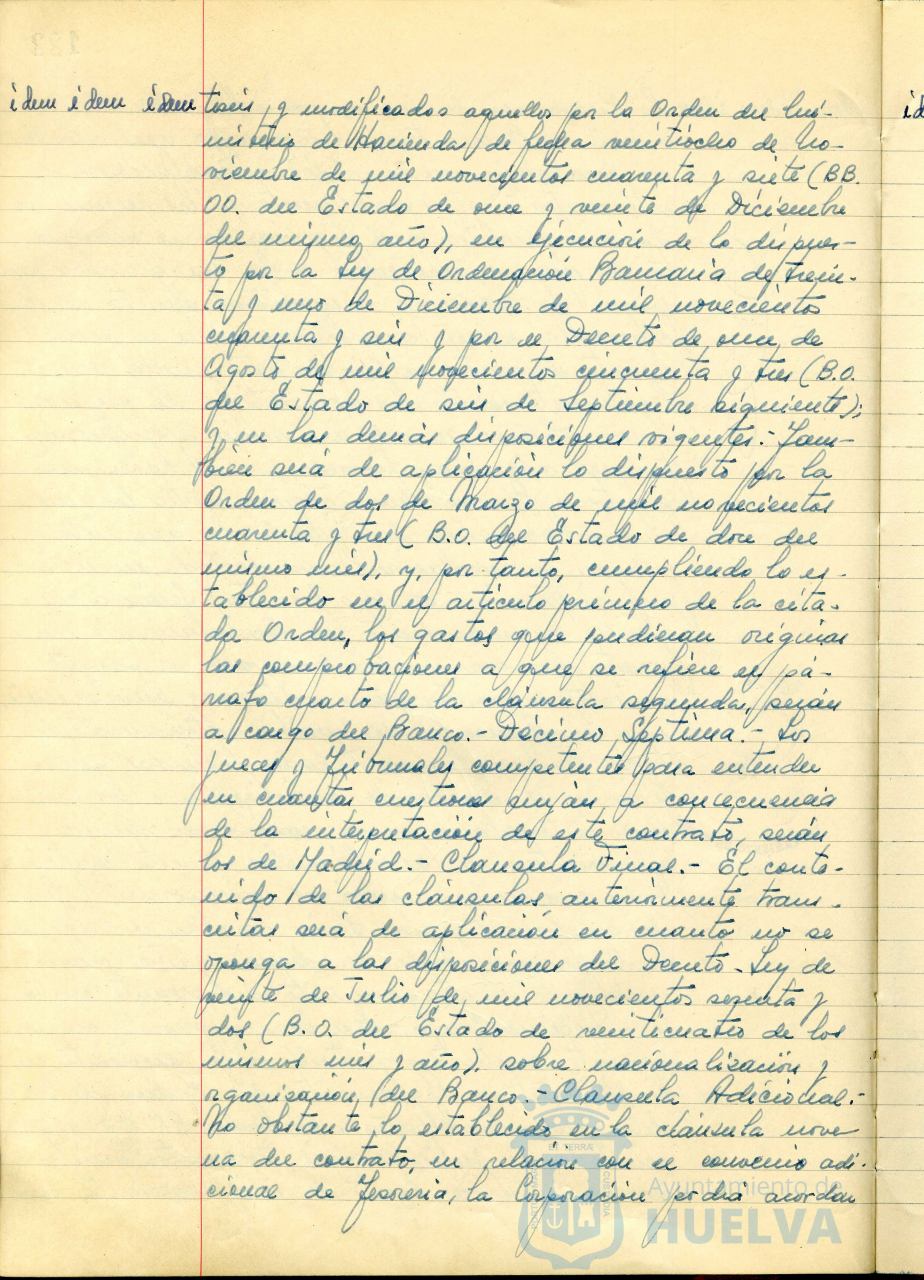 idem idem idem
tas, y modificados aquellos por la Orden del Mi-
nisterio de Hacienda de fecha veintiocho de No-
viembre de mil novecientos cuarenta y siete (BB.
OO. del Estado de once y veinte de Diciembre
del mismo año), en ejecución de lo dispues-
to por la Ley de Ordenación Bancaria de trein-
ta y uno de Diciembre de mil novecientos
cuarenta y seis y por el Decreto de once de
Agosto de mil novecientos cincuenta y tres (B.O.
del Estado de seis de Septiembre siguiente);
y en las demás disposiciones vigentes.- Tam-
bién será de aplicación lo dispuesto por la
Orden de dos de Marzo de mil novecientos
cuarenta y tres (B.O. del Estado de doce del
mismo mes), y, por tanto, cumpliendo lo es-
tablecido en el artículo primero de la cita-
da Orden, los gastos que pudieran originar
las comprobaciones a que se refiere el pá-
rrafo cuarto de la cláusula segunda, serán
a cargo del Banco.- Décimo Séptima.- Los
jueces y Tribunales competentes para entender
en cuantas cuestiones surjan a consecuencia
de la interpretación de este contrato, serán
los de Madrid.- Clausula Final.- El conte-
nido de las cláusulas anteriormente trans-
critas será de aplicación en cuanto no se
oponga a las disposiciones del Decreto-Ley de
veinte de Julio de mil novecientos sesenta y
dos (B.O. del Estado de veinticuatro de los
mismos mes y año). sobre nacionalización y
organización del Banco.- Clausula Adicional.-
No obstante lo establecido en la cláusula nove
na del contrato, en relación con el convenio adi-
cional de Tesorería, la Corporación podrá acordar
Ayuntamiento de
HUELVA